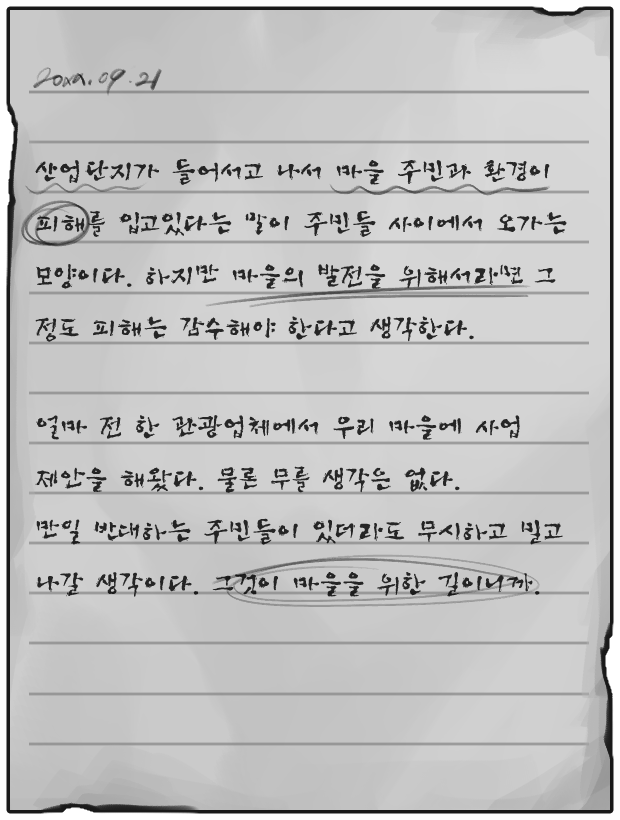 20xx.09.21
산업단지가 들어서고 나서 마을 주민과 환경이
피해를 입고있다는 말이 주민들 사이에서 오가는
모양이다. 하지만 마을의 발전을 위해서라면 그
정도 피해는 감수해야 한다고 생각한다.
얼마 전 한 관광업체에서 우리 마을에 사업
제안을 해왔다. 물론 무를 생각은 없다.
만일 반대하는 주민들이 있더라도 무시하고 밀고
나갈 생각이다. 그것이 마을을 위한 길이니까.